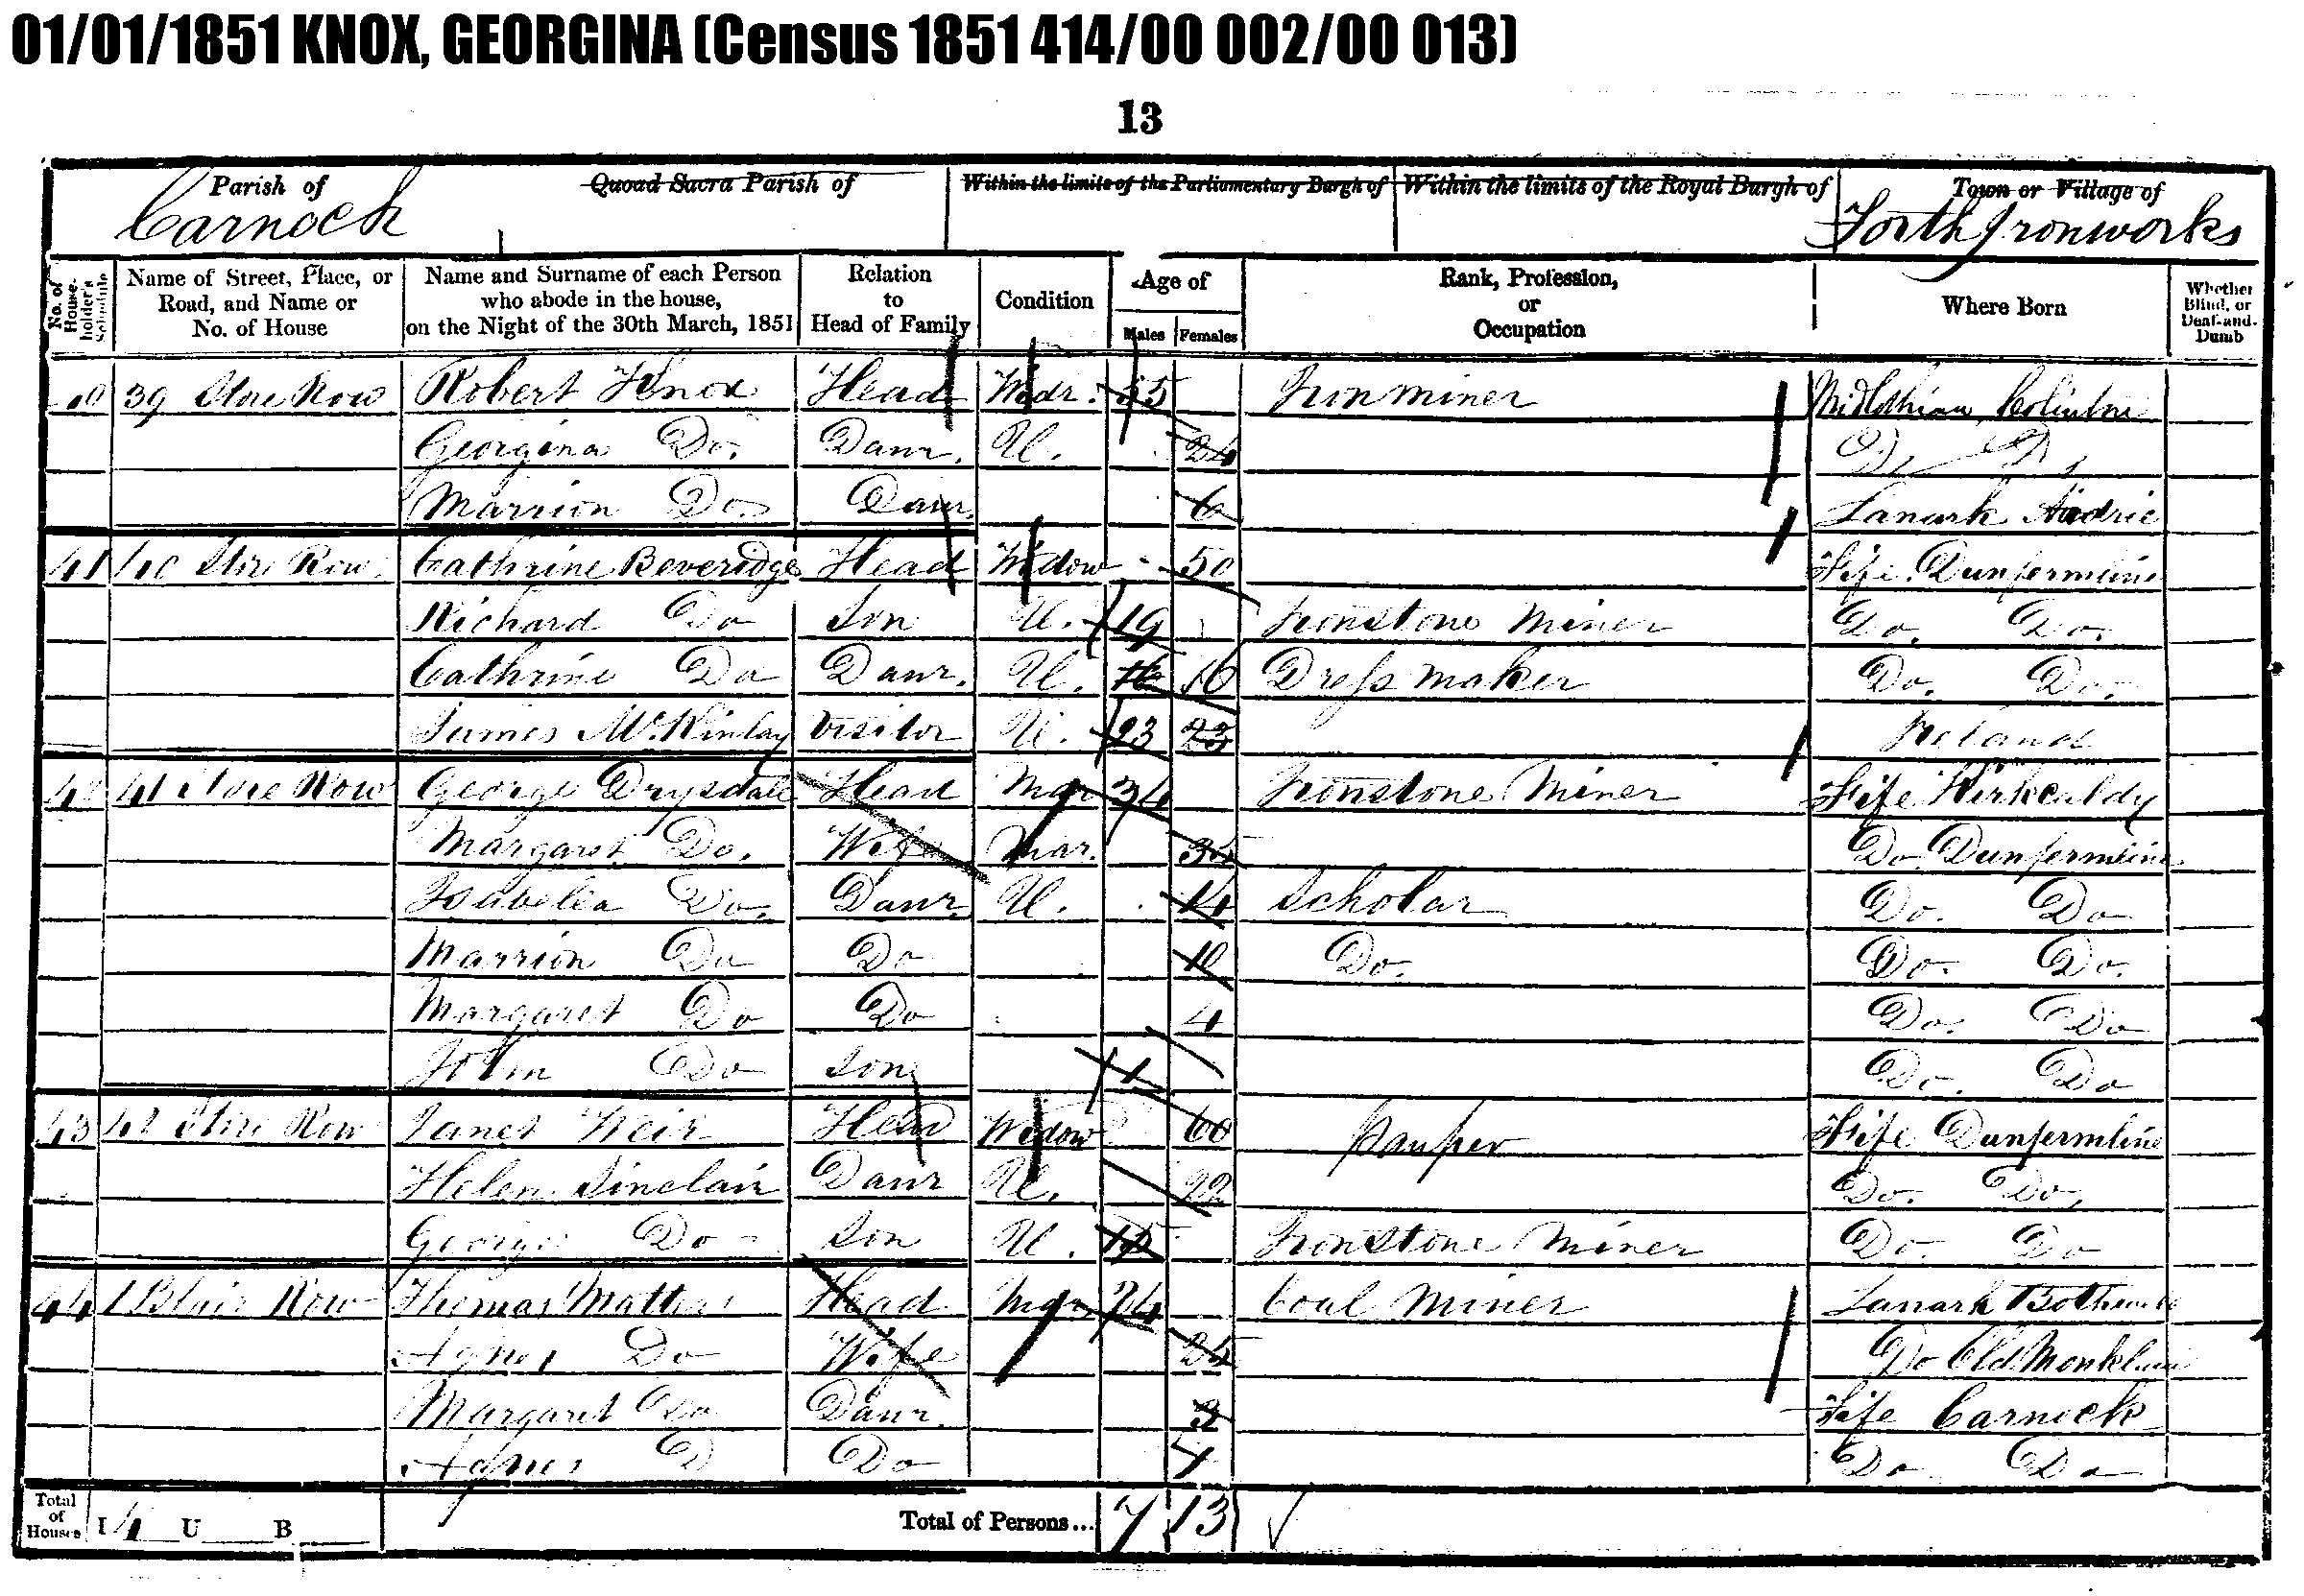 01/01/1851 KNOX, GEORGINA (Census 1851 414/00 002/00 013)
13
Parish of Quoad Sacra Parish of Within the limits of the Parliamentary Burgh of Within the limits of the Royal Burgh of Town or Village of
Carnock Forth Ironworks
No. of House-holder's Schedule Name of Street, Place, or Road, and Name or No. of House Name and Surname of each Person who abode in the house, on the Night of the 30th March, 1851 Relation to Head of Family Condition Age of Males Females Rank, Profession, or Occupation Where Born Whether Blind, or Deaf-and-Dumb
40 39 Store Row Robert Knox Head Widr. 55 Iron miner Midlothian
Georgina Do. Daur. U. 24 Do Do
Marrion Do. Daur. 6 Lanark Airdrie
41 40 Store Row Cathrine Beveridge Head Widow 50 Fife Dunfermline
Richard Do Son U. 19 Ironstone Miner Do. Do.
Cathrine Do Daur. U. 16 16 Dress maker Do. Do.
James McKinlay Visitor U. 23 23 Ireland
42 41 Store Row George Drysdale Head Mar 34 Ironstone Miner Fife Kirkcaldy
Margaret Do. Wife Mar. 35 Do Dunfermline
Isabella Do. Daur. U. 14 Scholar Do. Do
Marrion Do Do 10 Do. Do. Do.
Margaret Do Do 4 Do. Do
John Do Son 1 Do. Do
43 42 Store Row Janet Weir Head Widow 60 Pauper Fife Dunfermline
Helen Sinclair Daur U. 22 Do. Do.
George Do Son U. 15 Ironstone Miner Do. Do
44 1 Blair Row Thomas Head Mar 24 Coal Miner Lanark
Agnes Do Wife 25 Do Old Monkland
Margaret Do Daur. 3 Fife Carnock
Agnes D Do Do Do
Total of Houses I 4 U B Total of Persons... 7 13